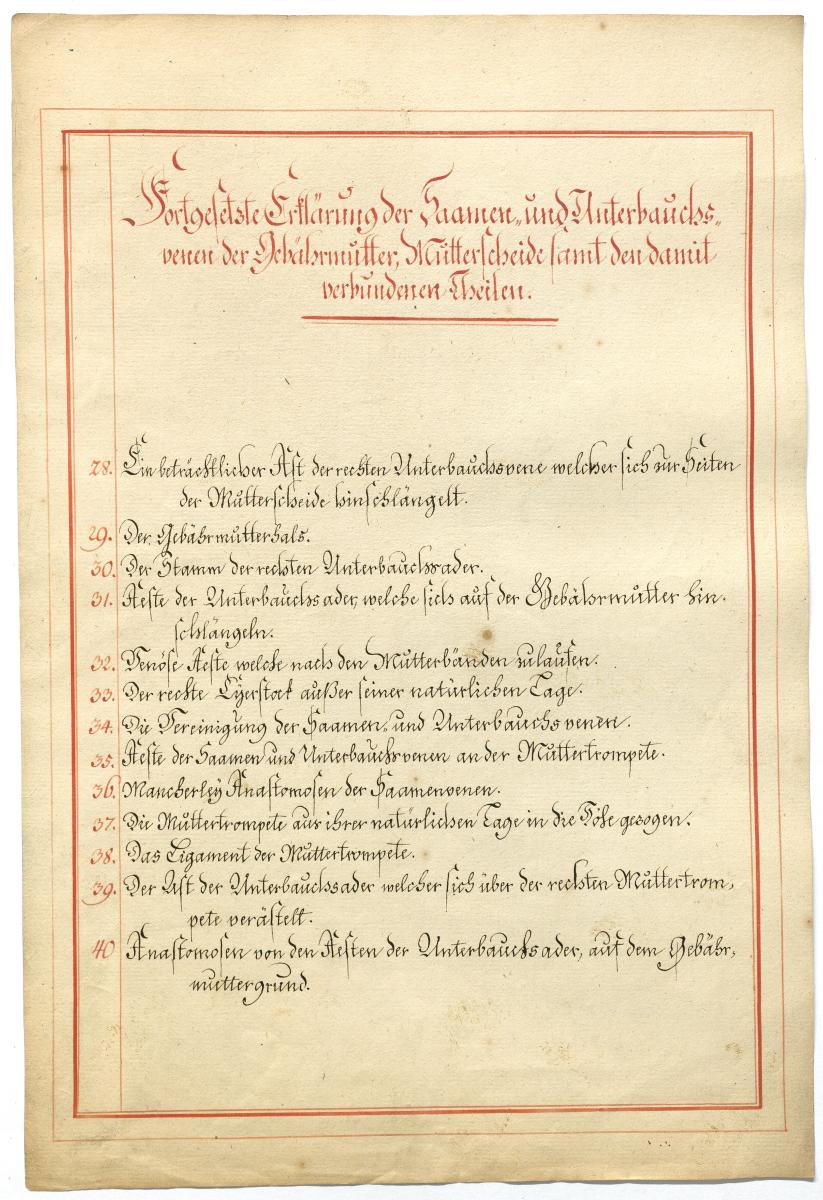 Fortgesetzte Erklärung der Saamen- und Unterbauchs-
venen der Gebährmutter, Mutterscheide samt den damit
verbundenen Theilen.
28. Ein beträchtlicher Ast der rechten Unterbauchsvene welcher sich zur Seiten
der Mutterscheide hinschlängelt.
29. Der Gebährmutterhals.
30. Der Stamm der rechten Unterbauchsader.
31. Aeste der Unterbauchsader, welche sich auf der Gebährmutter hin-
schlängeln.
32. Venöse Aeste welche nach den Mutterbänden zulaufen.
33. Der rechte Eyerstock außer seiner natürlichen Lage.
34. Die Vereinigung der Saamen- und Unterbauchsvenen.
35. Aeste der Saamen und Unterbauchsvenen an der Muttertrompete.
36. Mancherley Anastomosen der Saamenvenen.
37. Die Muttertrompete aus ihrer natürlichen Lage in die Höhe gezogen.
38. Das Ligament der Muttertrompete.
39. Der Ast der Unterbauchsader welcher sich über der rechten Muttertrom-
pete verästelt.
40 Anastomosen von den Aesten der Unterbauchsader, auf dem Gebähr-
muttergrund.